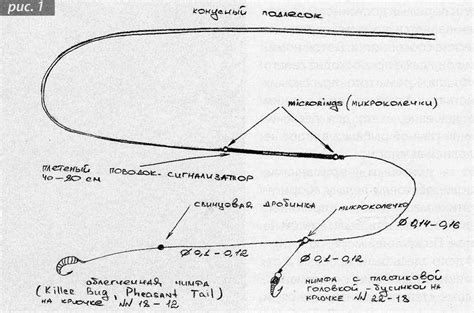 рис. 1
конусный подлесок
microrings (микроколечки)
плетеный поводок-сигнализатор
40-90 см
свинцовая дробинка
микроколечко
Ø 0,14-0,16
Ø 0,1-0,12
Ø 0,1-0,12
облегченная нимфа
(Killer Bug, Pheasant Tail)
на крючке NN 18-12
нимфа с пластиковой
головкой-бусинкой на
крючке NN 22-18